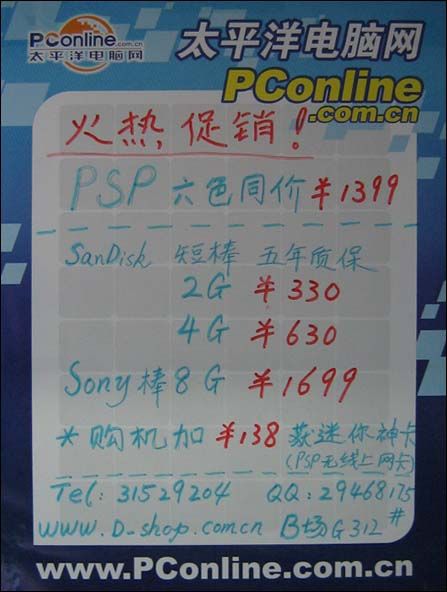 PConline.com.cn
太平洋电脑网
太平洋电脑网
PConline
.com.cn
火热促销!
PSP 六色同价 ¥1399
SanDisk 短棒 五年质保
2G ¥330
4G ¥630
Sony棒 8G ¥1699
*购机加 ¥138 获迷你神卡
(PSP无线上网卡)
Tel: 31529204 QQ: 29468175
www.D-shop.com.cn B场G312#
www.PConline.com.cn